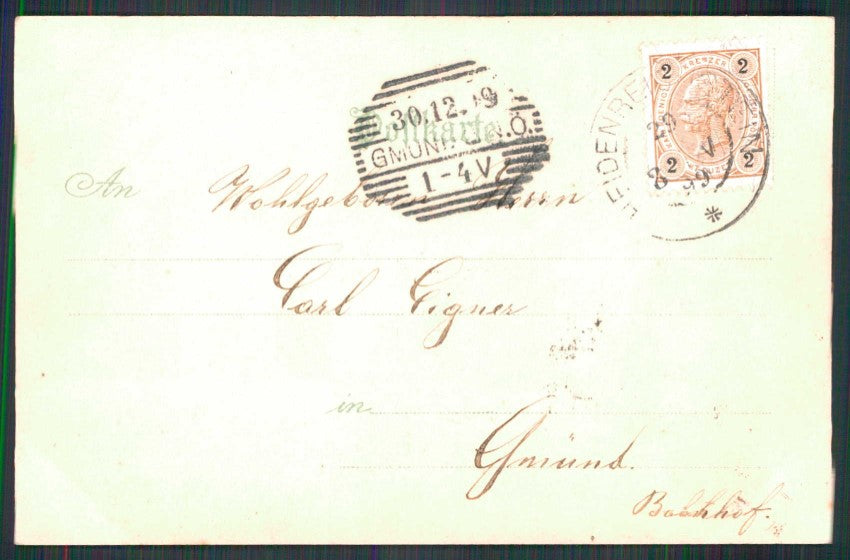 Postkarte
30.12.99
GMÜND N.Ö.
1-4 V
2 KREUZER 2
2 2
HEIDENRE
V
8 99
*
An Wohlgeboren Herrn
Carl Eigner
in
Gmünd.
Bahnhof.